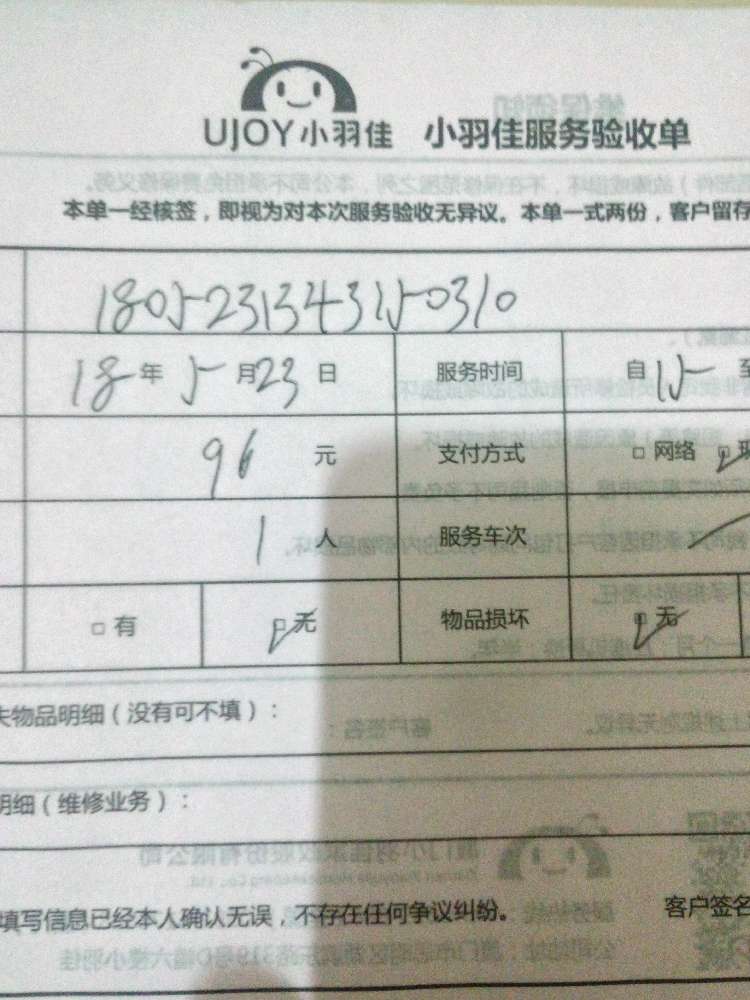 UJOY小羽佳 小羽佳服务验收单
本单一经核签，即视为对本次服务验收无异议。本单一式两份，客户留存
1805231343150310
18年5月23日 服务时间 自15至
96元 支付方式 □网络 □现
1人 服务车次
□有 □无 物品损坏 □无
失物品明细（没有可不填）：
明细（维修业务）：
填写信息已经本人确认无误，不存在任何争议纠纷。 客户签名